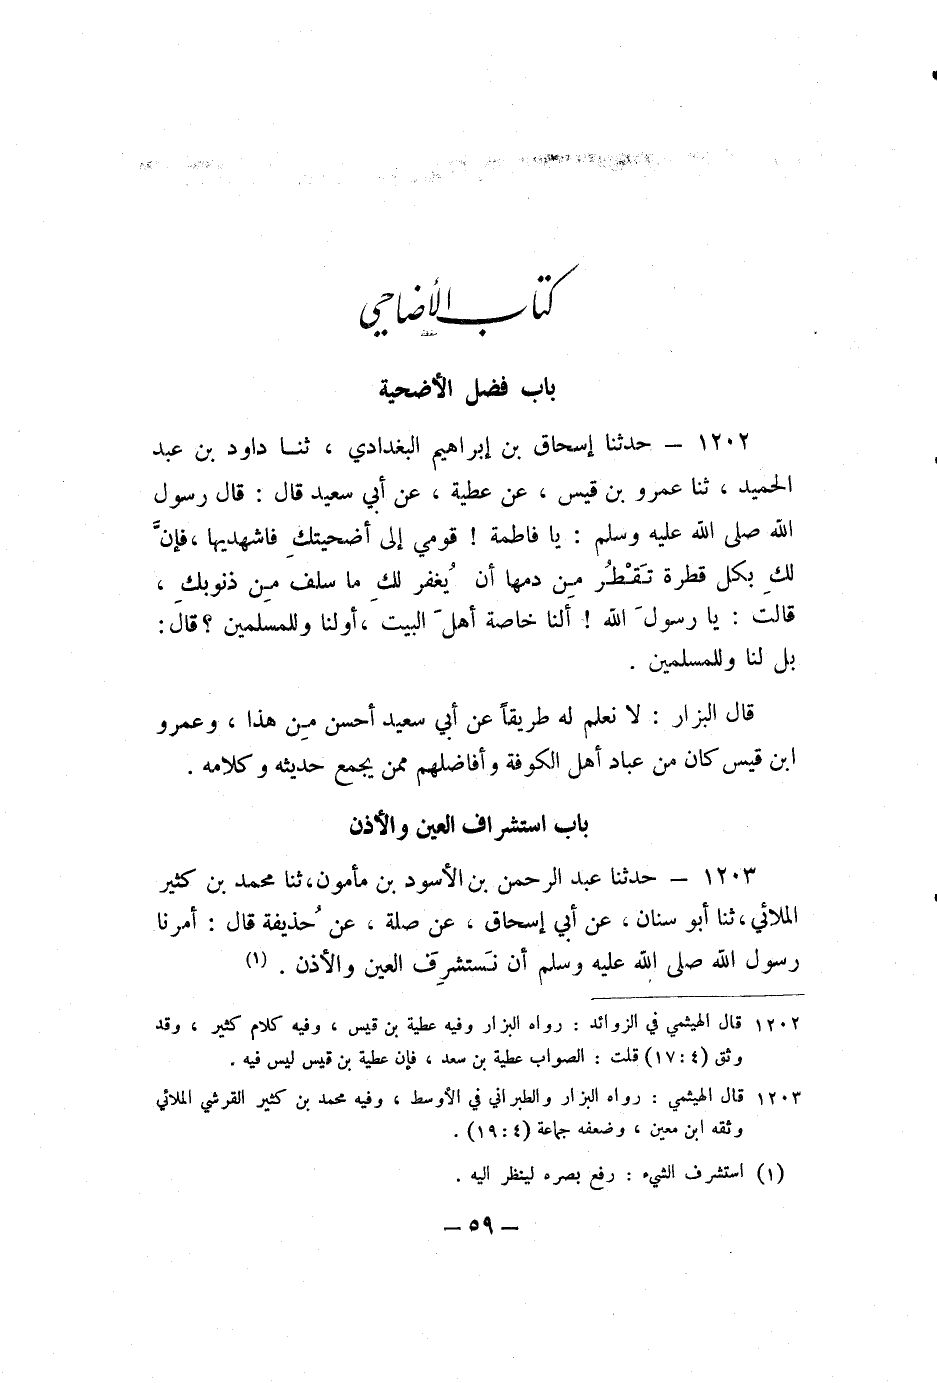 كتاب الأضاحي
باب فضل الأضحية
١٢٠٢ – حدثنا إسحاق بن إبراهيم البغدادي ، ثنا داود بن عبد
الحميد ، ثنا عمرو بن قيس ، عن عطية ، عن أبي سعيد قال : قال رسول
الله صلى الله عليه وسلم : يا فاطمة ! قومي إلى أضحيتكِ فاشهديها ، فإنَّ
لكِ بكل قطرة تَقْطُر مِن دمها أن يُغفر لكِ ما سلف مِن ذنوبكِ ،
قالت : يا رسولَ الله ! ألنا خاصة أهلَ البيت ، أولنا وللمسلمين ؟ قال :
بل لنا وللمسلمين .
قال البزار : لا نعلم له طريقاً عن أبي سعيد أحسن مِن هذا ، وعمرو
ابن قيس كان من عباد أهل الكوفة وأفاضلهم ممن يجمع حديثه وكلامه .
باب استشراف العين والأذن
١٢٠٣ – حدثنا عبد الرحمن بن الأسود بن مأمون ، ثنا محمد بن كثير
الملائي ، ثنا أبو سنان ، عن أبي إسحاق ، عن صلة ، عن حُذيفة قال : أمرنا
رسول الله صلى الله عليه وسلم أن نَستشرِفَ العين والأذن . (١)
١٢٠٢ قال الهيثمي في الزوائد : رواه البزار وفيه عطية بن قيس ، وفيه كلام كثير ، وقد
وثق (٤ : ١٧) قلت : الصواب عطية بن سعد ، فإن عطية بن قيس ليس فيه .
١٢٠٣ قال الهيثمي : رواه البزار والطبراني في الأوسط ، وفيه محمد بن كثير القرشي الملائي
وثقه ابن معين ، وضعفه جماعة (٤ : ١٩) .
(١) استشرف الشيء : رفع بصره لينظر اليه .
– ٥٩ –